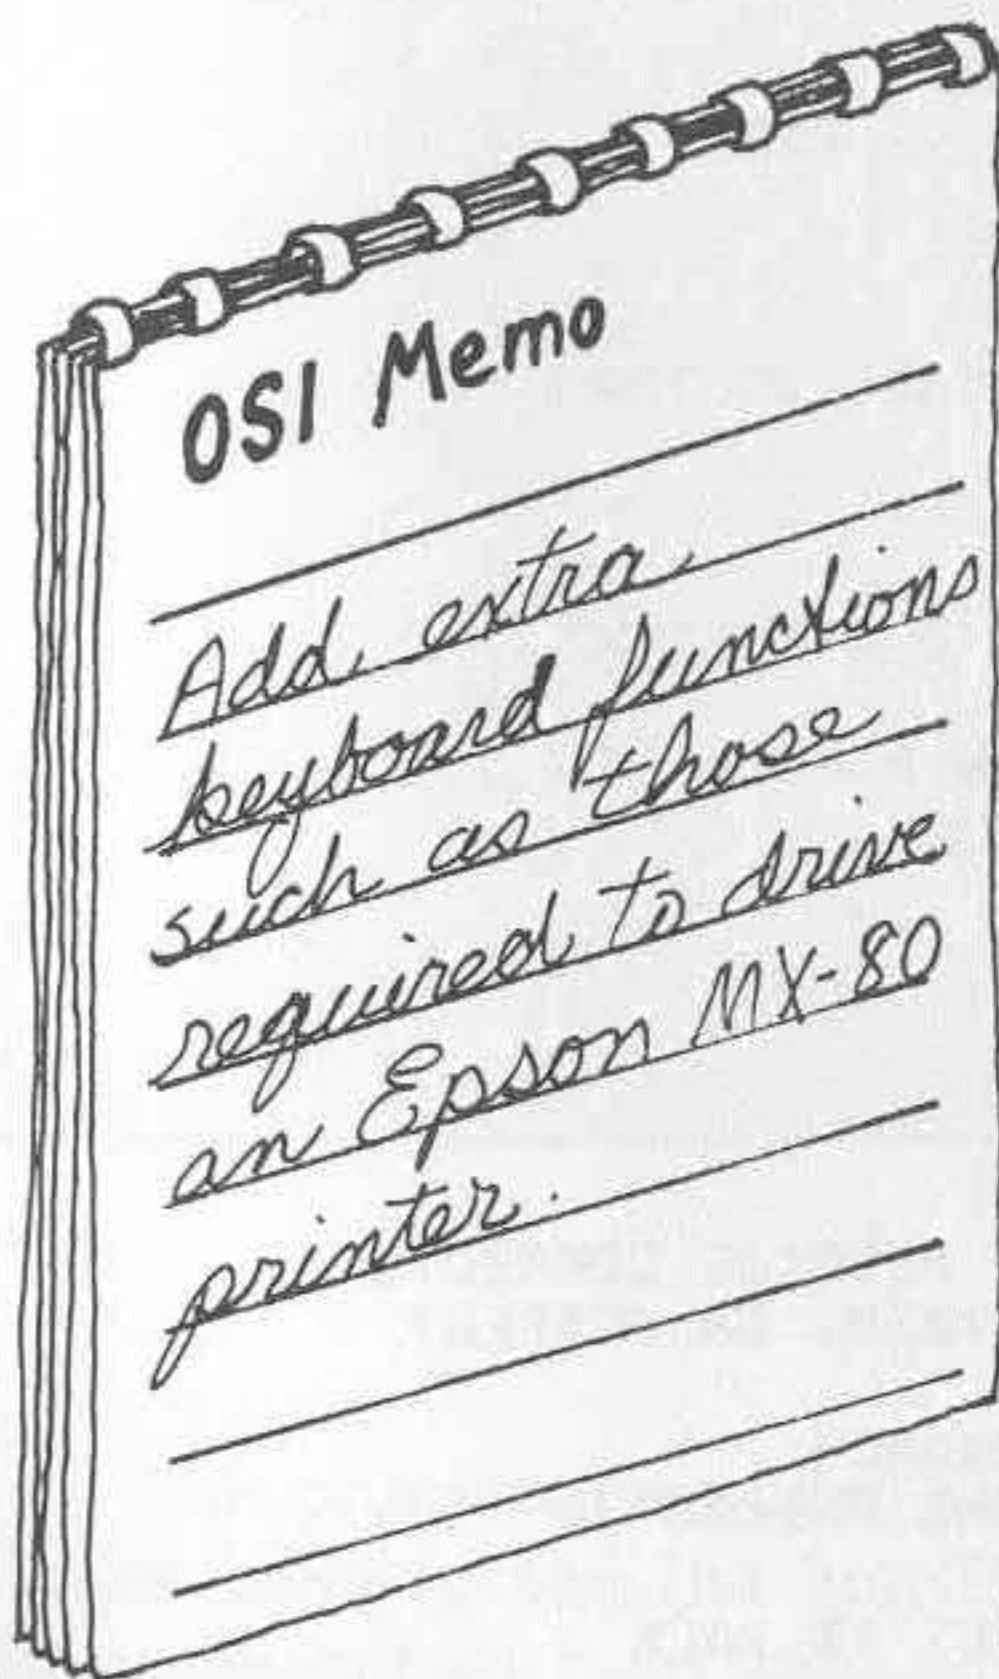 OSI Memo
Add extra
keyboard functions
such as those
required to drive
an Epson MX-80
printer.